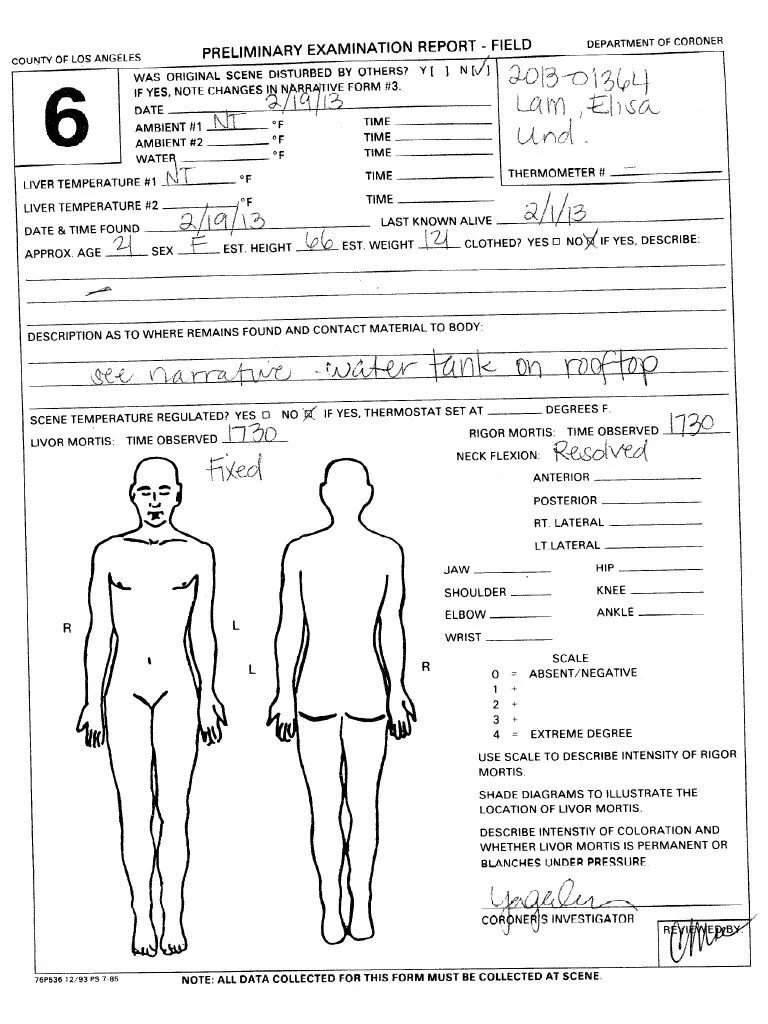 COUNTY OF LOS ANGELES PRELIMINARY EXAMINATION REPORT - FIELD DEPARTMENT OF CORONER
6
WAS ORIGINAL SCENE DISTURBED BY OTHERS? Y [ ] N [✓]
IF YES, NOTE CHANGES IN NARRATIVE FORM #3.
DATE 2/19/13
AMBIENT #1 NT °F TIME
AMBIENT #2 °F TIME
WATER °F TIME
2013-01364
Lam, Elisa
Und.
LIVER TEMPERATURE #1 NT °F TIME THERMOMETER # —
LIVER TEMPERATURE #2 °F TIME
DATE & TIME FOUND 2/19/13 LAST KNOWN ALIVE 2/1/13
APPROX. AGE 21 SEX F EST. HEIGHT 66 EST. WEIGHT 121 CLOTHED? YES □ NO ☒ IF YES, DESCRIBE:
DESCRIPTION AS TO WHERE REMAINS FOUND AND CONTACT MATERIAL TO BODY:
see narrative - water tank on rooftop
SCENE TEMPERATURE REGULATED? YES □ NO ☒ IF YES, THERMOSTAT SET AT DEGREES F.
LIVOR MORTIS: TIME OBSERVED 1730 RIGOR MORTIS: TIME OBSERVED 1730
Fixed
NECK FLEXION: Resolved
ANTERIOR
POSTERIOR
RT. LATERAL
LT.LATERAL
JAW HIP
SHOULDER KNEE
ELBOW ANKLE
WRIST
R L L R
SCALE
0 = ABSENT/NEGATIVE
1 +
2 +
3 +
4 = EXTREME DEGREE
USE SCALE TO DESCRIBE INTENSITY OF RIGOR
MORTIS.
SHADE DIAGRAMS TO ILLUSTRATE THE
LOCATION OF LIVOR MORTIS.
DESCRIBE INTENSTIY OF COLORATION AND
WHETHER LIVOR MORTIS IS PERMANENT OR
BLANCHES UNDER PRESSURE.
CORONER'S INVESTIGATOR
REVIEWED BY:
76P536 12/93 PS 7-85 NOTE: ALL DATA COLLECTED FOR THIS FORM MUST BE COLLECTED AT SCENE.